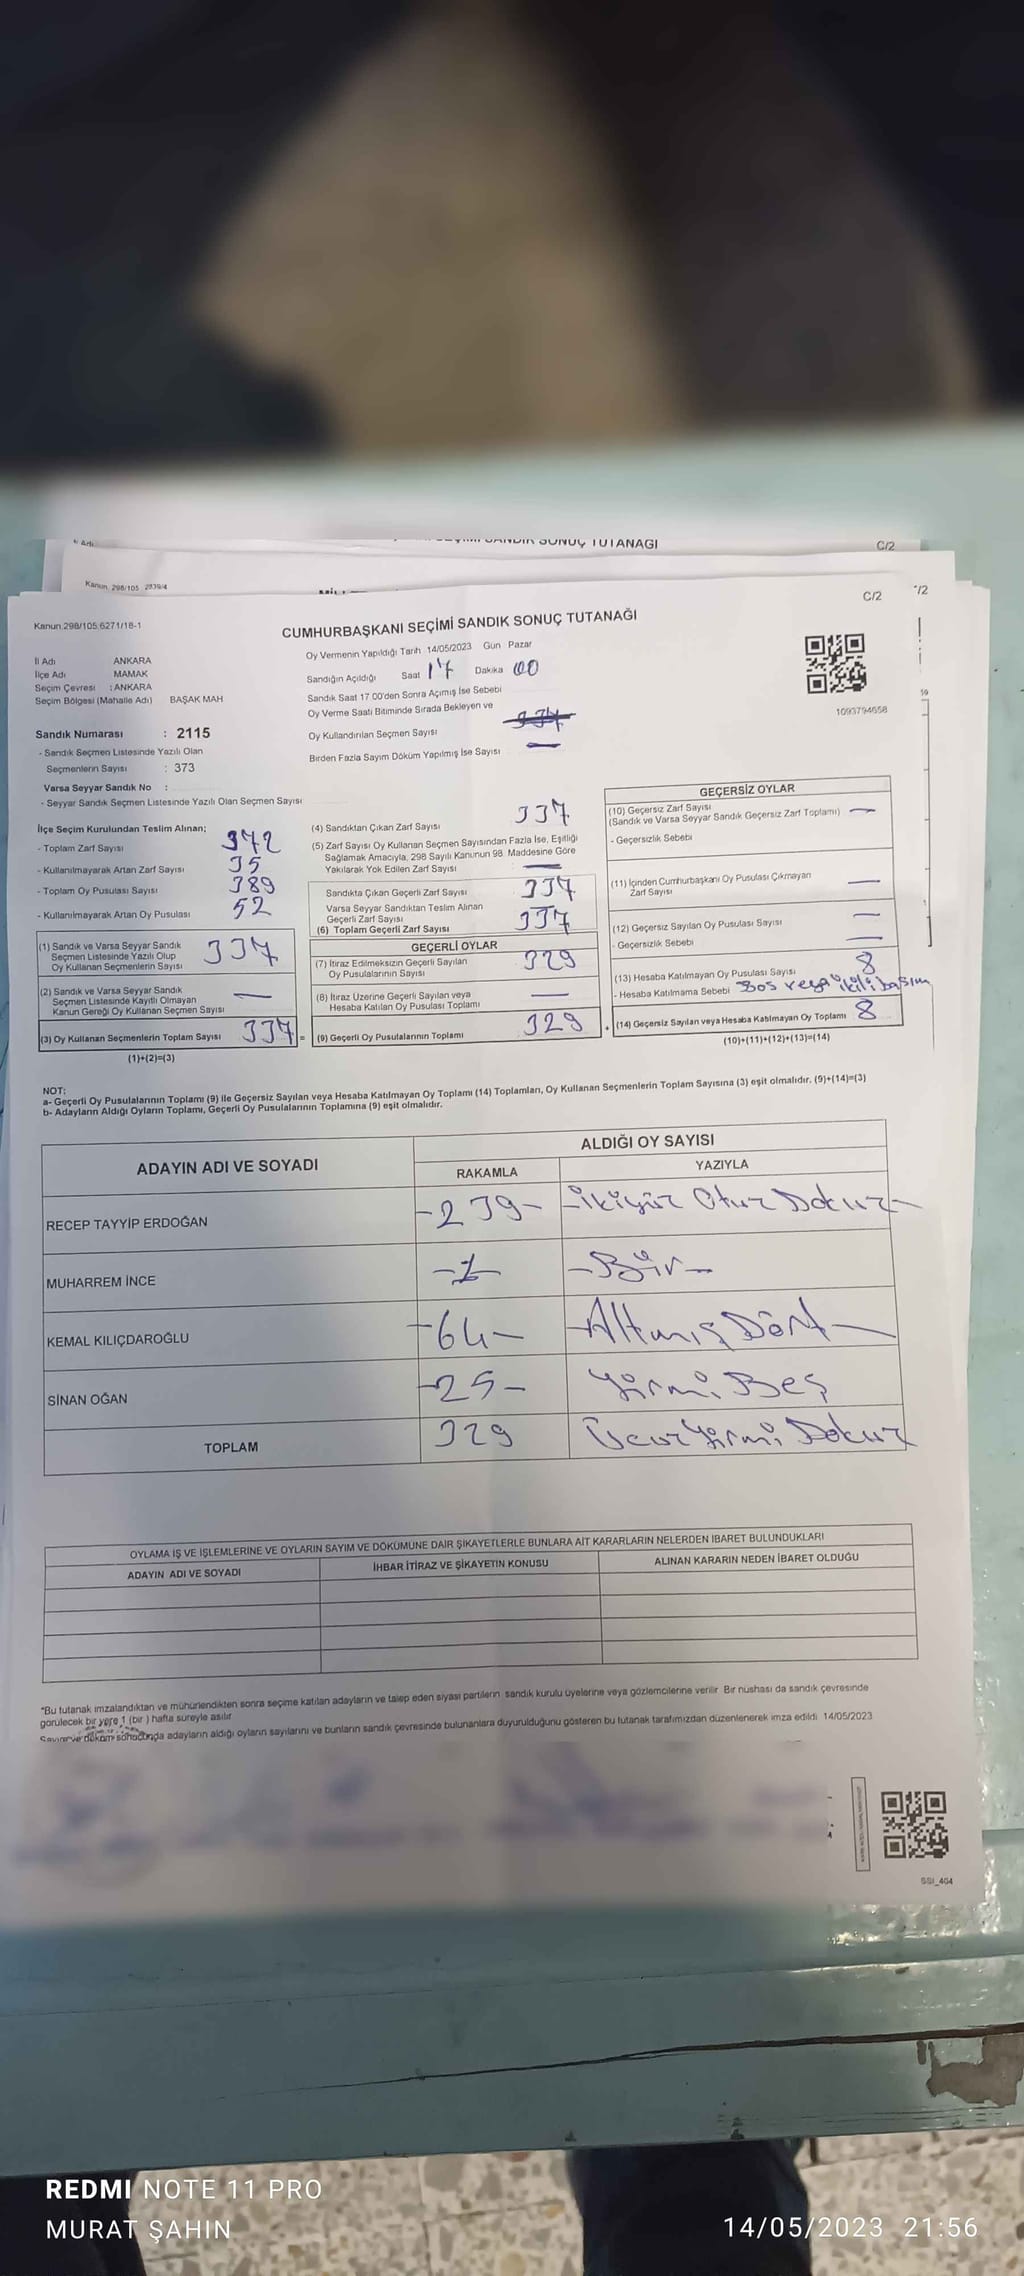 SANDIK SONUÇ TUTANAĞI
C/2
Kanun 298/105
C/2
Kanun.298/105.6271/18-1
CUMHURBAŞKANI SEÇİMİ SANDIK SONUÇ TUTANAĞI
İl Adı ANKARA
İlçe Adı MAMAK
Seçim Çevresi : ANKARA
Seçim Bölgesi (Mahalle Adı) BAŞAK MAH
Oy Vermenin Yapıldığı Tarih 14/05/2023 Gün Pazar
Sandığın Açıldığı Saat 17 Dakika 00
Sandık Saat 17.00'den Sonra Açımış İse Sebebi
Oy Verme Saati Bitiminde Sırada Bekleyen ve
Oy Kullandırılan Seçmen Sayısı 337
Birden Fazla Sayım Döküm Yapılmış İse Sayısı —
1093794658
Sandık Numarası : 2115
- Sandık Seçmen Listesinde Yazılı Olan
Seçmenlerin Sayısı : 373
Varsa Seyyar Sandık No :
- Seyyar Sandık Seçmen Listesinde Yazılı Olan Seçmen Sayısı
İlçe Seçim Kurulundan Teslim Alınan;
- Toplam Zarf Sayısı 372
- Kullanılmayarak Artan Zarf Sayısı 35
- Toplam Oy Pusulası Sayısı 389
- Kullanılmayarak Artan Oy Pusulası 52
(1) Sandık ve Varsa Seyyar Sandık
Seçmen Listesinde Yazılı Olup
Oy Kullanan Seçmenlerin Sayısı 337
(2) Sandık ve Varsa Seyyar Sandık
Seçmen Listesinde Kayıtlı Olmayan
Kanun Gereği Oy Kullanan Seçmen Sayısı —
(3) Oy Kullanan Seçmenlerin Toplam Sayısı 337 =
(1)+(2)=(3)
(4) Sandıktan Çıkan Zarf Sayısı 337
(5) Zarf Sayısı Oy Kullanan Seçmen Sayısından Fazla İse, Eşitliği
Sağlamak Amacıyla, 298 Sayılı Kanunun 98. Maddesine Göre
Yakılarak Yok Edilen Zarf Sayısı —
Sandıkta Çıkan Geçerli Zarf Sayısı 337
Varsa Seyyar Sandıktan Teslim Alınan
Geçerli Zarf Sayısı
(6) Toplam Geçerli Zarf Sayısı 337
GEÇERLİ OYLAR
(7) İtiraz Edilmeksizin Geçerli Sayılan
Oy Pusulalarının Sayısı 329
(8) İtiraz Üzerine Geçerli Sayılan veya
Hesaba Katılan Oy Pusulası Toplamı —
(9) Geçerli Oy Pusulalarının Toplamı 329 +
GEÇERSİZ OYLAR
(10) Geçersiz Zarf Sayısı
(Sandık ve Varsa Seyyar Sandık Geçersiz Zarf Toplamı) —
- Geçersizlik Sebebi
(11) İçinden Cumhurbaşkanı Oy Pusulası Çıkmayan
Zarf Sayısı —
(12) Geçersiz Sayılan Oy Pusulası Sayısı —
- Geçersizlik Sebebi —
(13) Hesaba Katılmayan Oy Pusulası Sayısı 8
- Hesaba Katılmama Sebebi Bos veya ikili basım
(14) Geçersiz Sayılan veya Hesaba Katılmayan Oy Toplamı 8
(10)+(11)+(12)+(13)=(14)
NOT:
a- Geçerli Oy Pusulalarının Toplamı (9) ile Geçersiz Sayılan veya Hesaba Katılmayan Oy Toplamı (14) Toplamları, Oy Kullanan Seçmenlerin Toplam Sayısına (3) eşit olmalıdır. (9)+(14)=(3)
b- Adayların Aldığı Oyların Toplamı, Geçerli Oy Pusulalarının Toplamına (9) eşit olmalıdır.
ADAYIN ADI VE SOYADI
ALDIĞI OY SAYISI
RAKAMLA YAZIYLA
RECEP TAYYİP ERDOĞAN -239- -ikiyüz Otuz Dokuz-
MUHARREM İNCE -1- -Bir-
KEMAL KILIÇDAROĞLU -64- -Altmış Dört-
SİNAN OĞAN -25- Yirmi Beş
TOPLAM 329 Üçyüz Yirmi Dokuz
OYLAMA İŞ VE İŞLEMLERİNE VE OYLARIN SAYIM VE DÖKÜMÜNE DAİR ŞİKAYETLERLE BUNLARA AİT KARARLARIN NELERDEN İBARET BULUNDUKLARI
ADAYIN ADI VE SOYADI İHBAR İTİRAZ VE ŞİKAYETİN KONUSU ALINAN KARARIN NEDEN İBARET OLDUĞU
*Bu tutanak imzalandıktan ve mühürlendikten sonra seçime katılan adayların ve talep eden siyasi partilerin sandık kurulu üyelerine veya gözlemcilerine verilir. Bir nüshası da sandık çevresinde
görülecek bir yere 1 (bir ) hafta süreyle asılır.
Sayım ve döküm sonucunda adayların aldığı oyların sayılarını ve bunların sandık çevresinde bulunanlara duyurulduğunu gösteren bu tutanak tarafımızdan düzenlenerek imza edildi. 14/05/2023
SSI_404
REDMI NOTE 11 PRO
MURAT ŞAHIN
14/05/2023 21:56